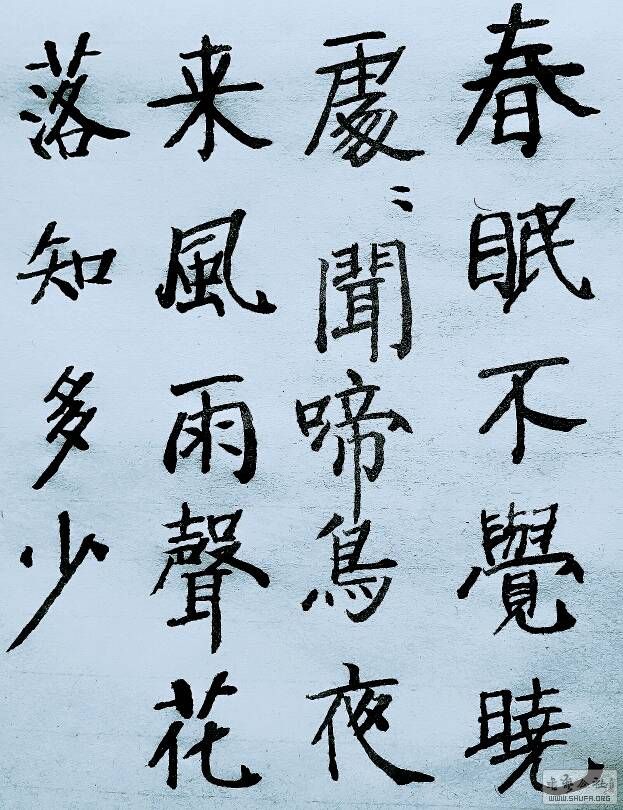 春眠不覺曉
處〻聞啼鳥夜
来風雨聲花
落知多少
WWW.SHUFA.ORG